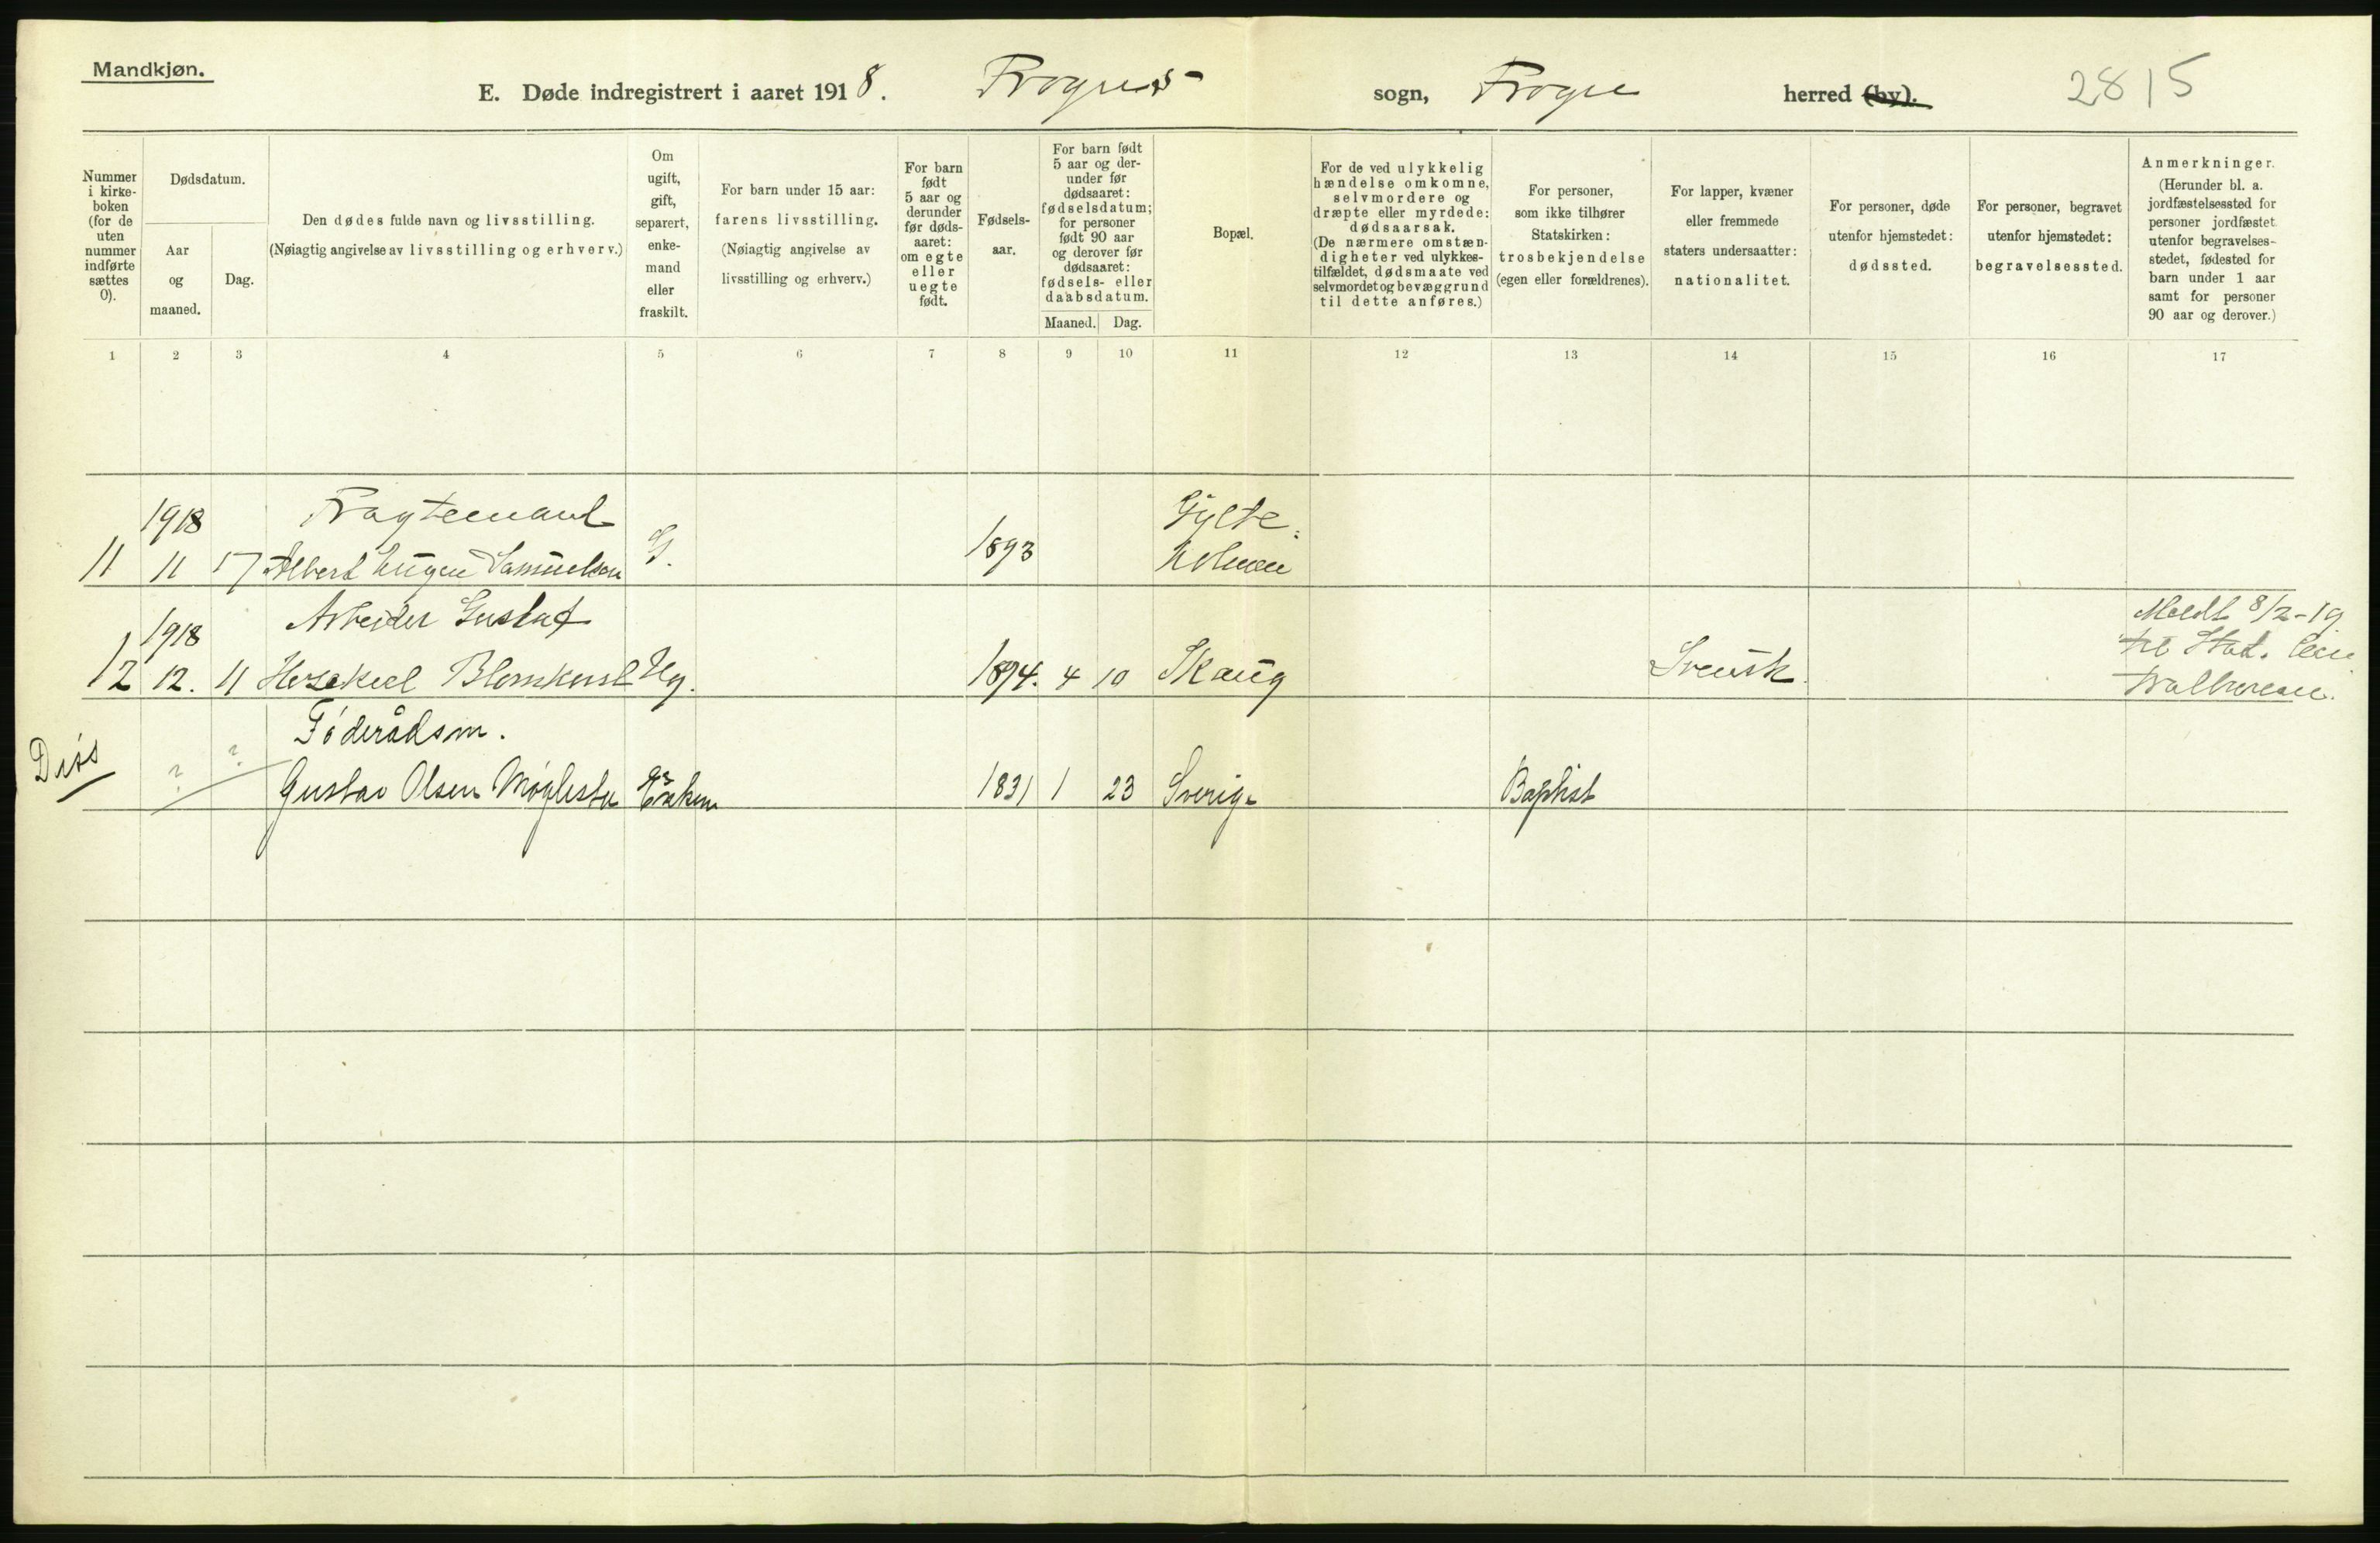 Mandkjøn.
E. Døde indregistrert i aaret 1918. Frogns sogn, Frogn herred (by). 2815
Nummer i kirke-boken (for de uten nummer indførte sættes 0).
Dødsdatum.
Aar og maaned.
Dag.
Den dødes fulde navn og livsstilling.
(Nøiagtig angivelse av livsstilling og erhverv.)
Om ugift, gift, separert, enke-mand eller fraskilt.
For barn under 15 aar:
farens livsstilling.
(Nøiagtig angivelse av livsstilling og erhverv.)
For barn født 5 aar og derunder før døds-aaret: om egte eller uegte født.
Fødsels-aar.
For barn født 5 aar og der-under før dødsaaret: fødselsdatum; for personer født 90 aar og derover før dødsaaret: fødsels- eller daabsdatum.
Maaned. Dag.
Bopæl.
For de ved ulykkelig hændelse omkomne, selvmordere og dræpte eller myrdede: dødsaarsak.
(De nærmere omstæn-digheter ved ulykkes-tilfældet, dødsmaate ved selvmordet og bevæggrund til dette anføres.)
For personer, som ikke tilhører Statskirken: trosbekjendelse (egen eller forældrenes).
For lapper, kvæner eller fremmede staters undersaatter: nationalitet.
For personer, døde utenfor hjemstedet: dødssted.
For personer, begravet utenfor hjemstedet: begravelsessted.
Anmerkninger.
(Herunder bl. a. jordfæstelsessted for personer jordfæstet utenfor begravelses-stedet, fødested for barn under 1 aar samt for personer 90 aar og derover.)
1 2 3 4 5 6 7 8 9 10 11 12 13 14 15 16 17
1918 Fragtemand Gylte-
11 11 17 Albert Eugen Samuelsen G. 1893 holmen
1918 Arbeider Gustaf Meldt 8/2-19
12 12. 11 Hesekiel Blomkvist Ug. 1894. 4 10 Skaug Svensk til Stat. Cen
tralbureau.
Føderådsm.
Diss ? ? Gustav Olsen Enkem 1831 1 23 Sverige Baptist